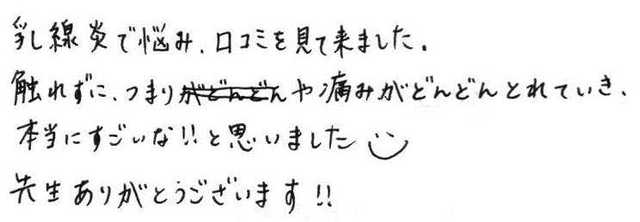 乳し線炎で悩み、口コミを見て来ました。
触れずに、つまりがどんどんや痛みがどんどんとれていき、
本当にすごいな!!と思いました
先生ありがとうございます!!